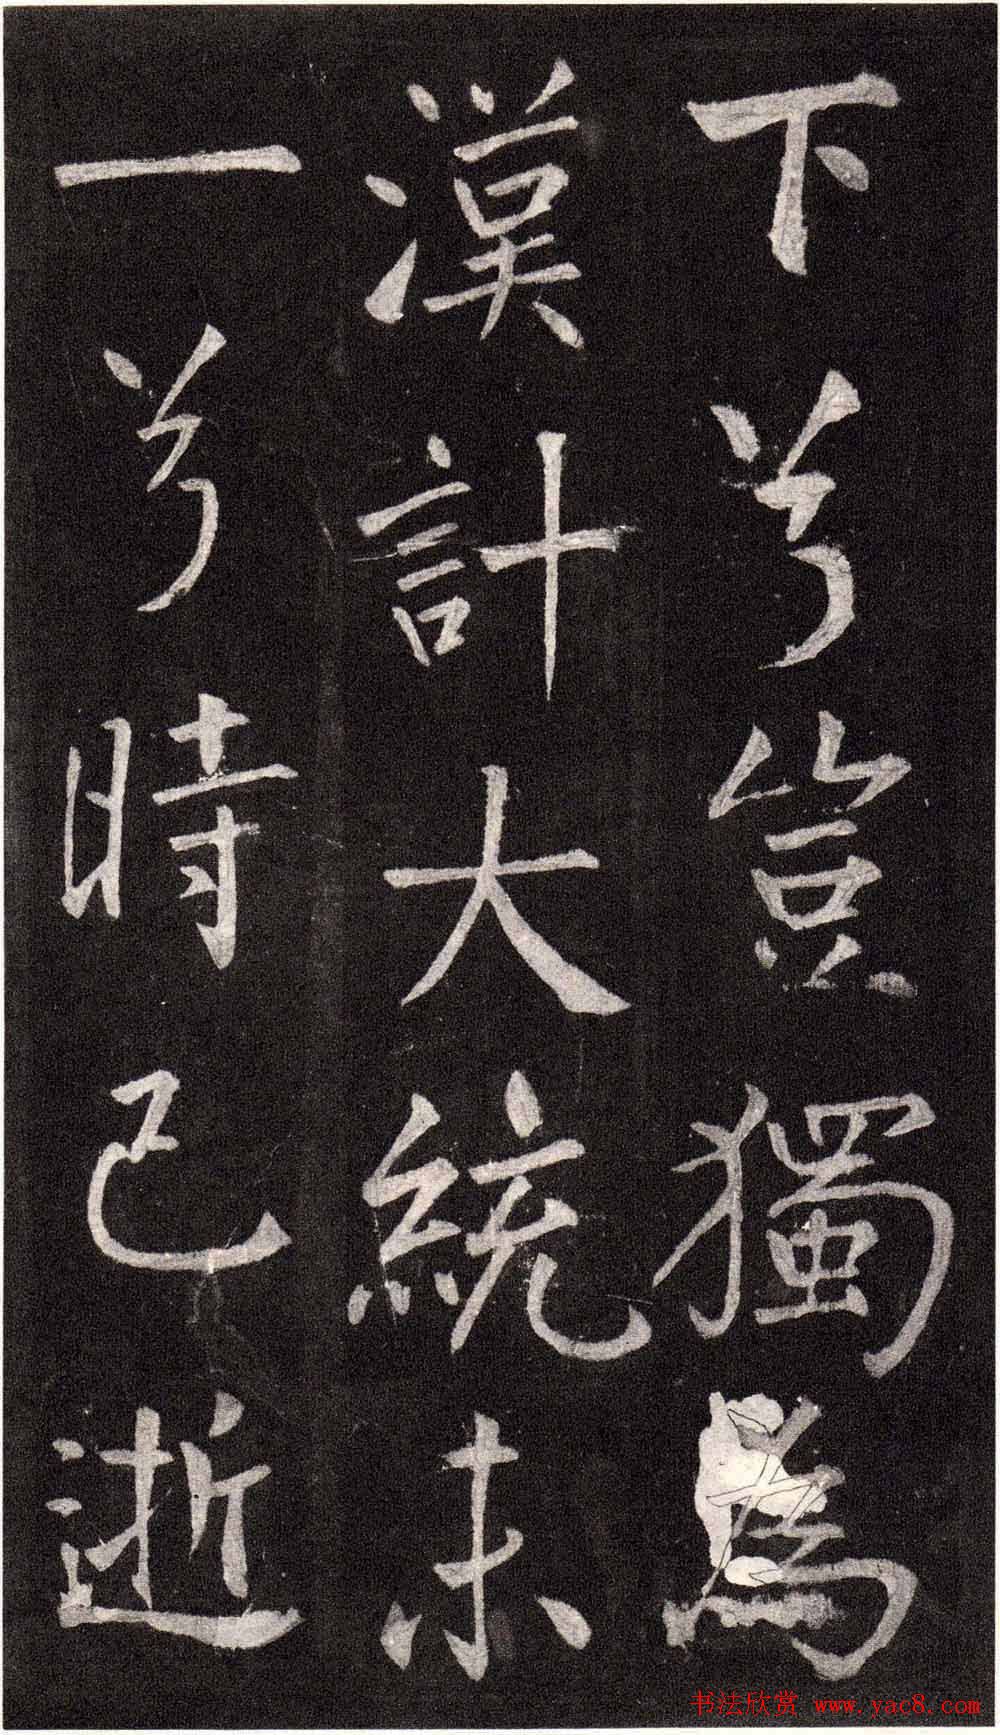 下兮豈獨為
漢計大統未
一兮時已逝
书法欣赏 www.yac8.com